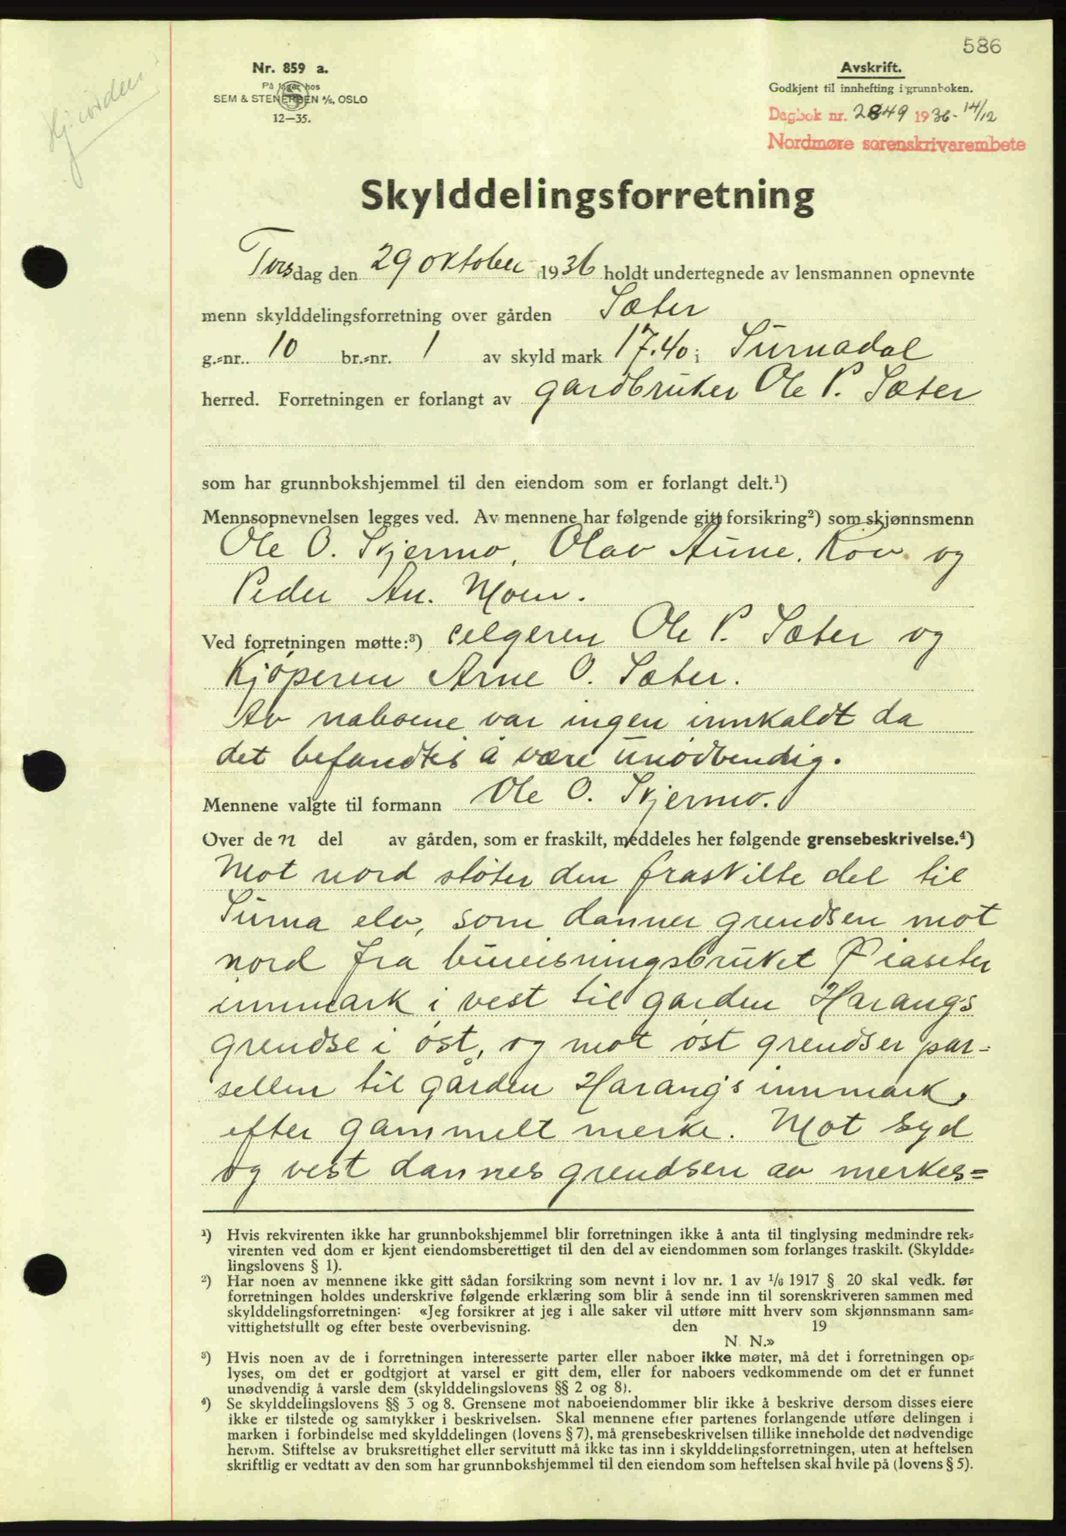 586
Hj: vorden
Nr. 859 a.
På lager hos
SEM & STENERSEN A/S, OSLO
12—35.
Avskrift.
Godkjent til innhefting i grunnboken.
Dagbok nr. 2849 1936 - 14/12
Nordmøre sorenskrivarembete
Skylddelingsforretning
Torsdag den 29 oktober 1936 holdt undertegnede av lensmannen opnevnte
menn skylddelingsforretning over gården Sæter
g.=nr.. 10 br.=nr. 1 av skyld mark 17.40 i Surnadal
herred. Forretningen er forlangt av gardbruker Ole P. Sæter
som har grunnbokshjemmel til den eiendom som er forlangt delt.¹)
Mennsopnevnelsen legges ved. Av mennene har følgende gitt forsikring²) som skjønnsmenn
Ole O. Skjermo, Olav Aune. Kov og
Peder An. Moen.
Ved forretningen møtte:³) selgeren Ole P. Sæter og
Kjøperen Arne O. Sæter.
Av naboene var ingen innkaldt da
det befandtes å være unødvendig.
Mennene valgte til formann Ole O. Skjermo.
Over de n del av gården, som er fraskilt, meddeles her følgende grensebeskrivelse.⁴)
Mot nord støter den fraskilte del til
Surna elv, som danner grendsen mot
nord fra bureisningsbruket Øiaseter
innmark i vest til garden Harangs
grendse i øst, og mot øst grendser par=
sellen til gården Harang's innmark,
efter gammelt merke. Mot Syd
og vest dannes grendsen av merkes=
¹) Hvis rekvirenten ikke har grunnbokshjemmel blir forretningen ikke å anta til tinglysing medmindre rek=
virenten ved dom er kjent eiendomsberettiget til den del av eiendommen som forlanges fraskilt. (Skyldde=
lingslovens § 1).
²) Har noen av mennene ikke gitt sådan forsikring som nevnt i lov nr. 1 av 1/6 1917 § 20 skal vedk. før
forretningen holdes underskrive følgende erklæring som blir å sende inn til sorenskriveren sammen med
skylddelingsforretningen: «Jeg forsikrer at jeg i alle saker vil utføre mitt hverv som skjønnsmann sam=
vittighetsfullt og efter beste overbevisning. den 19
N. N.»
³) Hvis noen av de i forretningen interesserte parter eller naboer ikke møter, må det i forretningen op=
lyses, om det er godtgjort at varsel er gitt dem, eller for naboers vedkommende om det er funnet
unødvendig å varsle dem (skylddelingslovens §§ 2 og 8).
⁴) Se skylddelingslovens §§ 3 og 8. Grensene mot naboeiendommer blir ikke å beskrive dersom disses eiere
ikke er tilstede og samtykker i beskrivelsen. Skal mennene efter partenes forlangende utføre delingen i
marken i forbindelse med skylddelingen (lovens § 7), må grensebeskrivelsen tillike inneholde det nødvendige
herom. Stiftelse av bruksrettighet eller servitutt må ikke tas inn i skylddelingsforretningen, uten at heftelsen
skriftlig er vedtatt av den som har grunnbokshjemmel til den eiendom som heftelsen skal hvile på (lovens § 5).